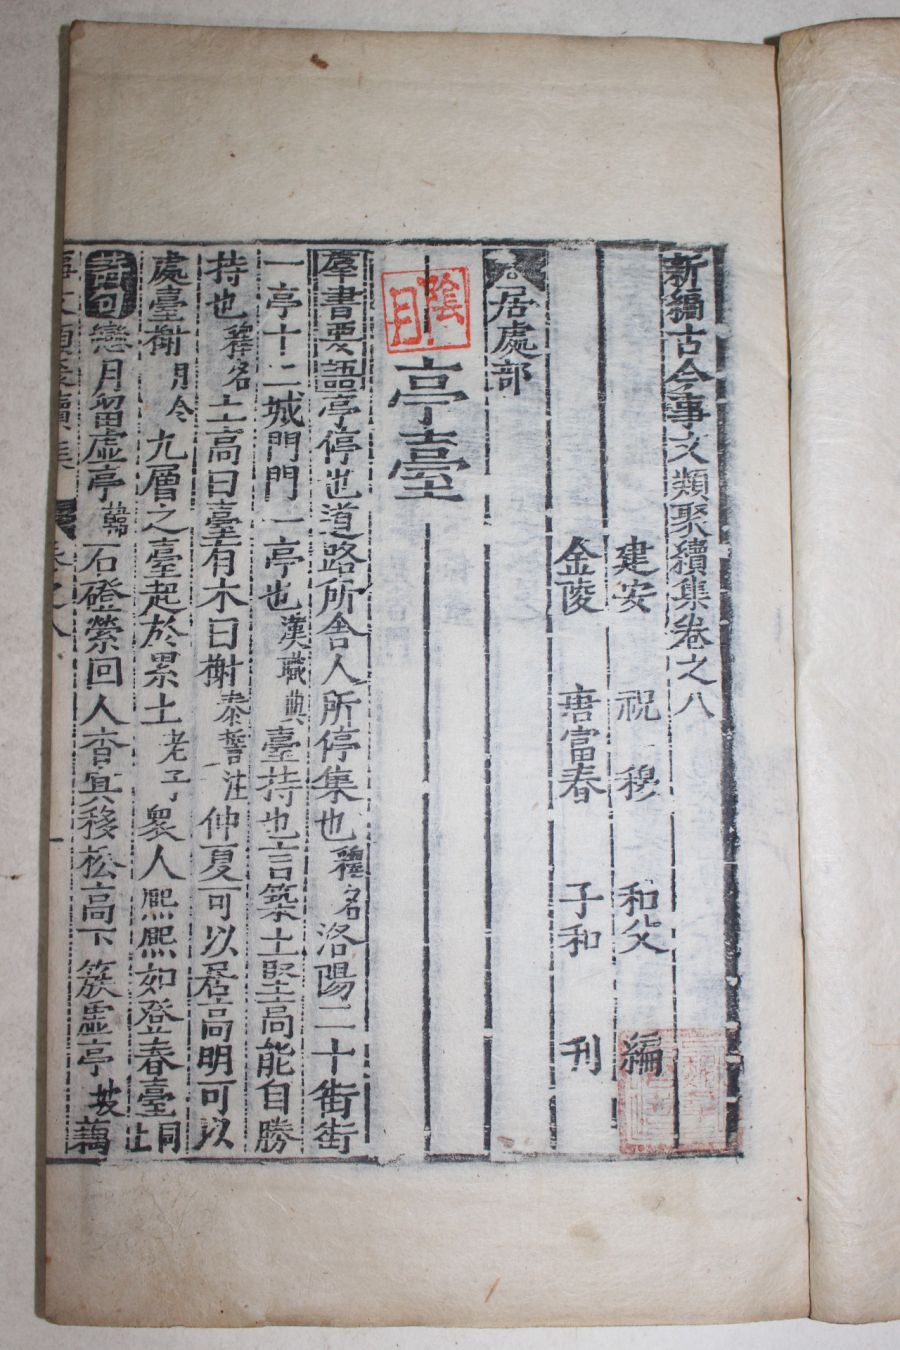 新編古今事文類聚續集卷之八
建安 祝 穆 和父 編
金陵 唐富春 子和 刊
居處部
亭臺
羣書要語亭停也道路所舍人所停集也釋名洛陽二十街街
一亭十二城門門一亭也漢職典臺持也言築土堅高能自勝
持也釋名土高曰臺有木曰榭泰誓注仲夏可以居高明可以
處臺榭月令九層之臺起於累土老子衆人熈熈如登春臺同上
詩句戀月留虛亭韓石磴縈回人杳寞移松高下簇虛亭坡藕
陰月